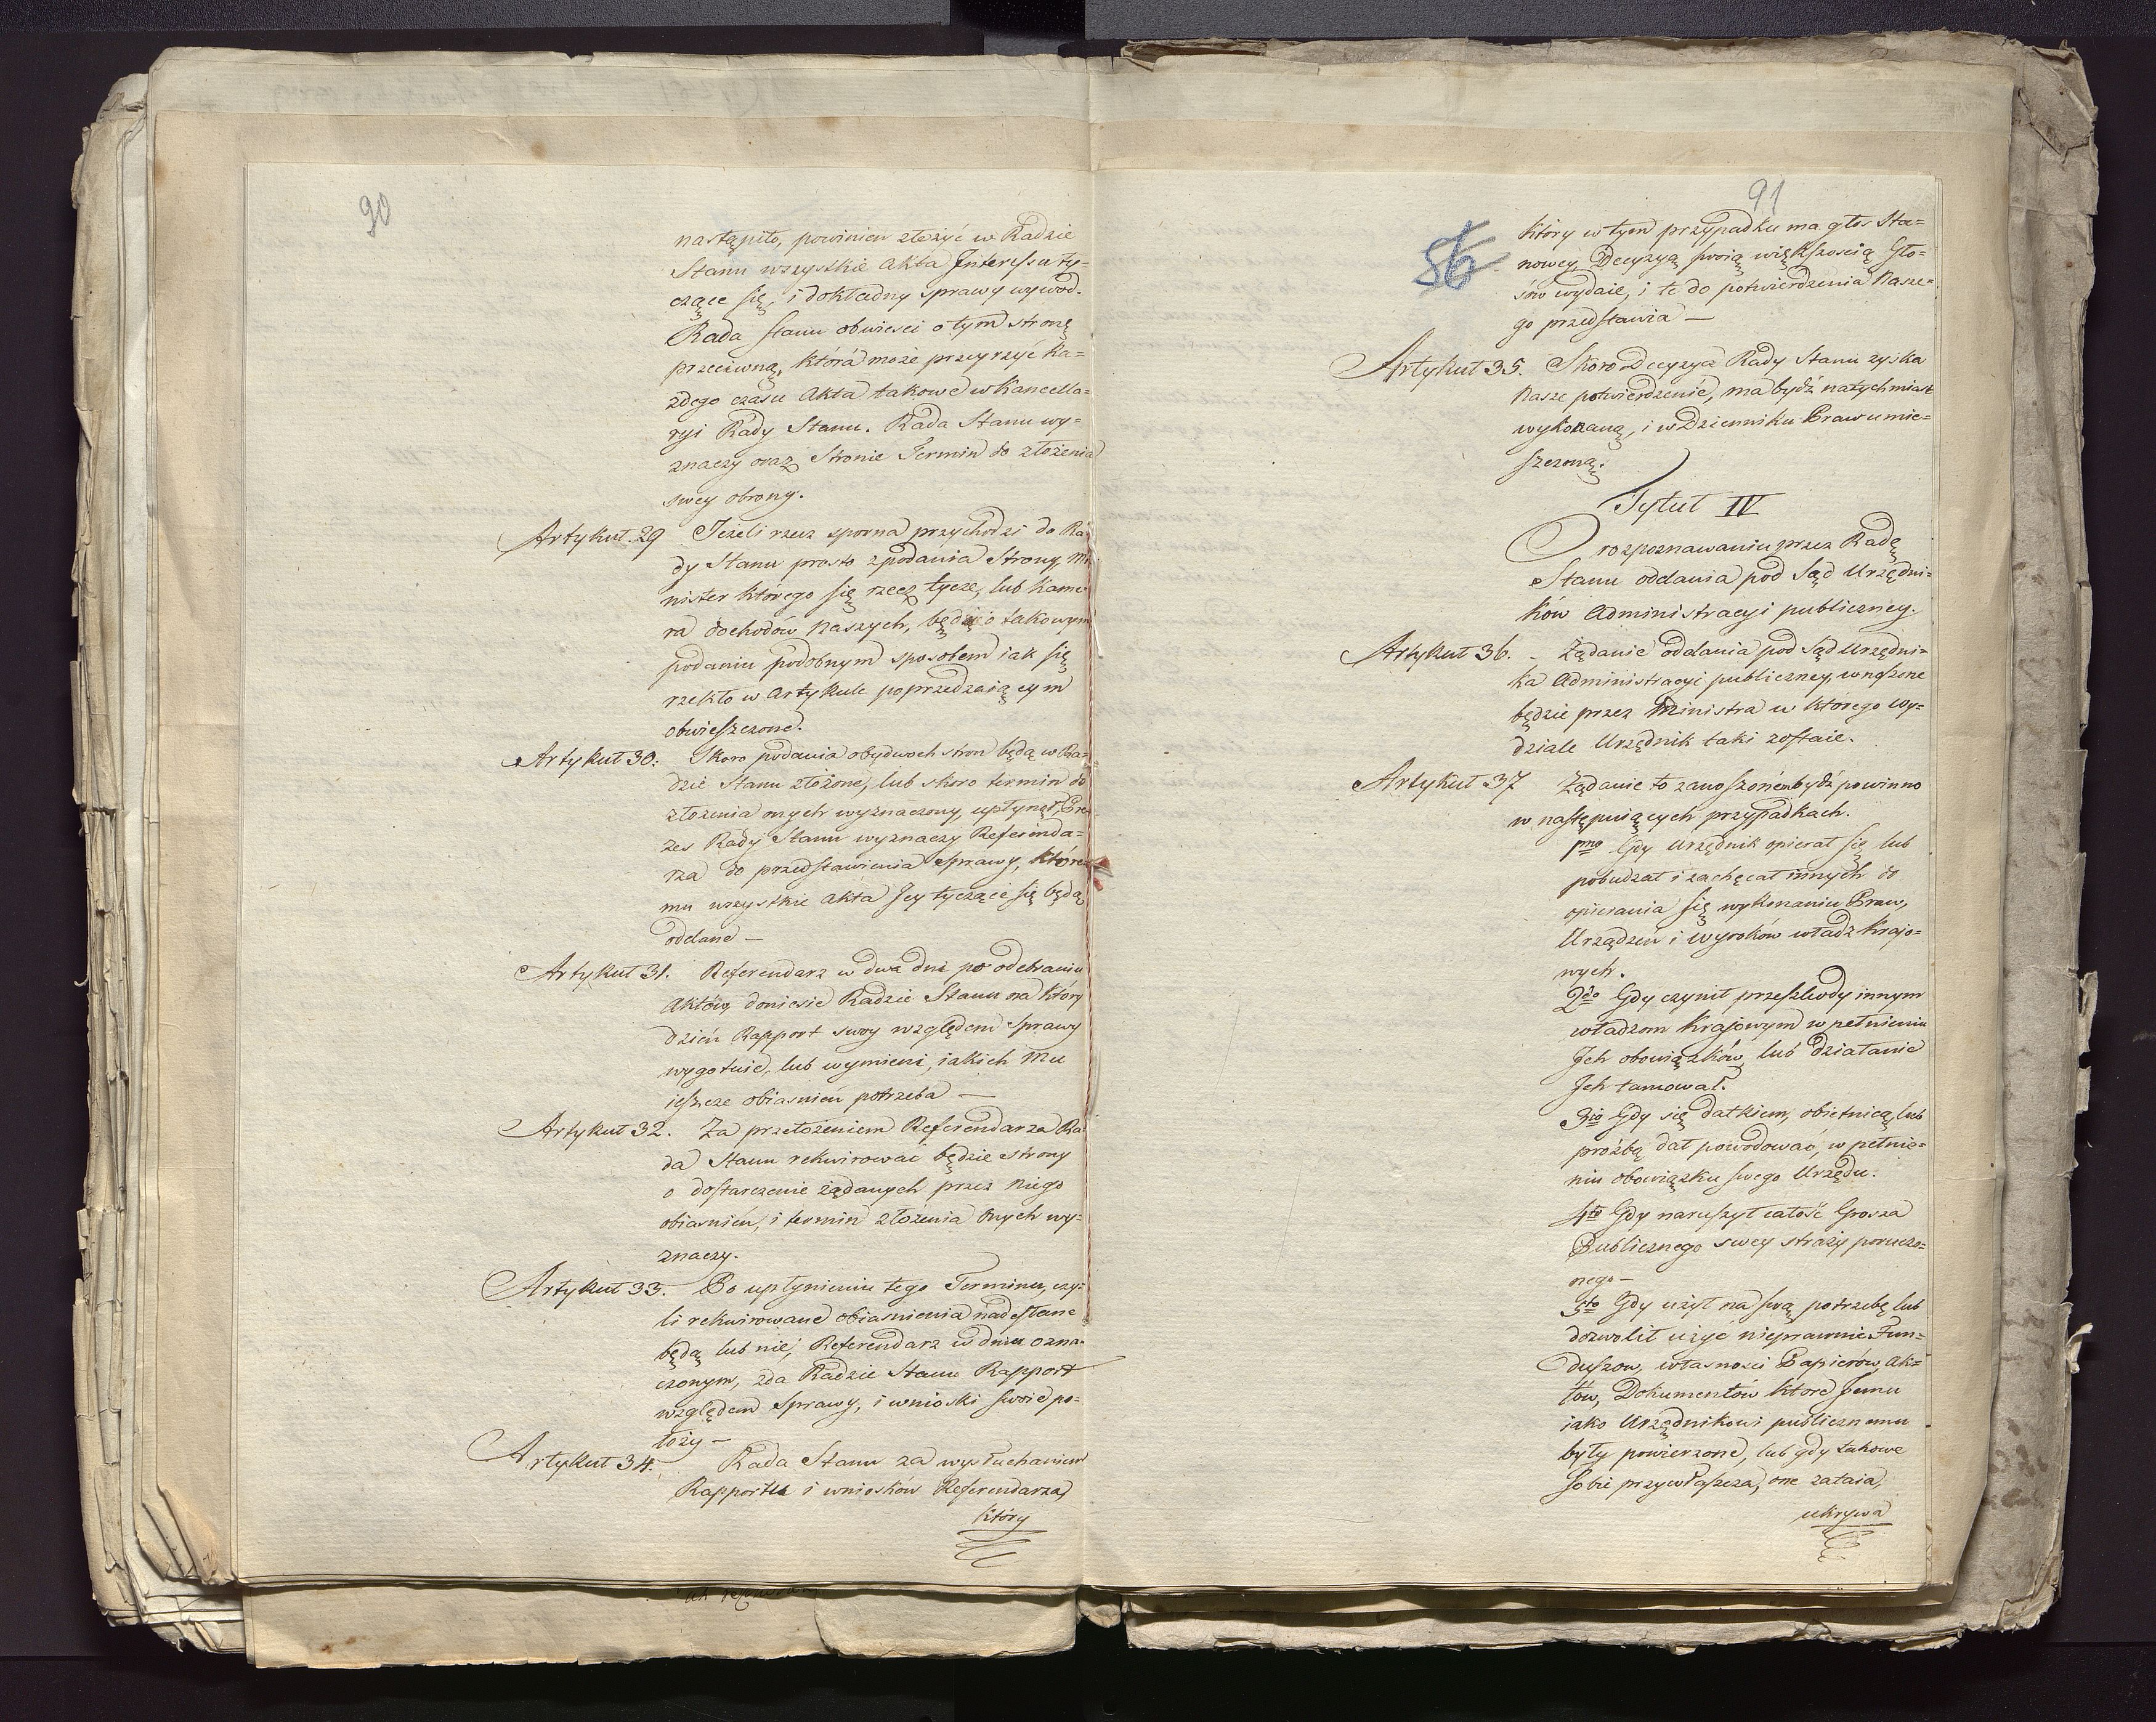 90
nastąpiło, powinien złożyć w Radzie
Stanu wszystkie Akta Interessu ty=
czące się, i dokładny sprawy wywod.
Rada stanu obwiesci o tym stronę
przeciwną, która może przeyrzyć ka=
żdego czasu Akta takowe w Kancella=
ryi Rady Stanu. Rada Stanu wy=
znaczy oraz Stronie Termin do złożenia
swey obrony.
Artykuł 29 Jeżeli rzecz sporna przychodzi do Ra
dy Stanu prosto z podania Strony, Mi
nister którego się rzecz tycze, lub Kame
ra dochodów Naszych, będzie o takowym
podaniu podobnym sposobem iak się
rzekło w Artykule poprzedzaiącym
obwieszczone.
Artykuł 30. Skoro podania obydwoch stron będą w Ra=
dzie Stanu złożone, lub skoro termin do
złożenia onych wyznaczony, upłynął, Pre
zes Rady Stanu wyznaczy Referenda=
rza do przedstawienia sprawy, które
mu wszystkie Akta Jey tyczące się będą
oddane —
Artykuł 31. Referendarz w dwa dni po odebraniu
Aktów, doniesie Radzie Stanu na który
dzień Rapport swoy względem sprawy
wygotuie, lub wymieni, iakich mu
ieszcze obiasnień potrzeba —
Artykuł 32. Za przełożeniem Referendarza Ra
da Stanu rekwirować będzie strony
o dostarczenie żądanych przez niego
obiasnień, i termin złożenia onych wy=
znaczy.
Artykuł 33. Po upłynieniu tego Terminu, czy=
li rekwirowane obiasnienia nadesłane
będą lub nie, Referendarz w dniu ozna=
czonym, zda Radzie Stanu Rapport
względem sprawy, i wnioski swoie po=
łoży —
Artykuł 34. Rada Stanu za wysłuchaniem
Rapportu i wniosków Referendarza,
który
91
56
który w tym przypadku ma głos Sta=
nowcy, Decyzyą swoią większością Gło=
sów wydaie, i te do potwierdzenia Nasze=
go przedstawia —
Artykuł 35. Skoro Decyzya Rady Stanu zyska
Nasze potwierdzenie, ma bydź natychmiast
wykonaną, i w Dzienniku Praw umie=
szczoną.
Tytuł IV
O rozpoznawaniu przez Radę
Stanu oddania pod Sąd Urzędni=
ków Administracyi publiczney.
Artykuł 36. Żądanie oddania pod Sąd Urzędni=
ka Administracyi publiczney, wnoszone
będzie przez Ministra w którego wy=
dziale Urzędnik taki zostaie.
Artykuł 37 Żądanie to zanoszone bydź powinno
w następuiących przypadkach.
1mo Gdy Urzędnik opierał się lub
pobudzał i zachęcał innych do
opierania się wykonaniu Praw,
Urządzeń i Wyroków władz krajo=
wych.
2do Gdy czynił przeszkody innym
władzom krajowym w pełnieniu
Jch obowiązków, lub działanie
Jch tamował.
3io Gdy się datkiem, obietnicą, lub
proźbą dał powodować, w pełnie=
niu obowiązku swego Urzędu.
4to Gdy naruszył całość Grosza
Publicznego swey straży poruczo=
nego —
5to Gdy użył na swą potrzebę lub
dozwolił użyć nieprawnie Fun=
duszow, własności Papierów, Ak=
tów, Dokumentów które Jemu
iako Urzędnikowi publicznemu
były powierzone, lub gdy takowe
sobie przywłaszcza, one zataia,
ukrywa